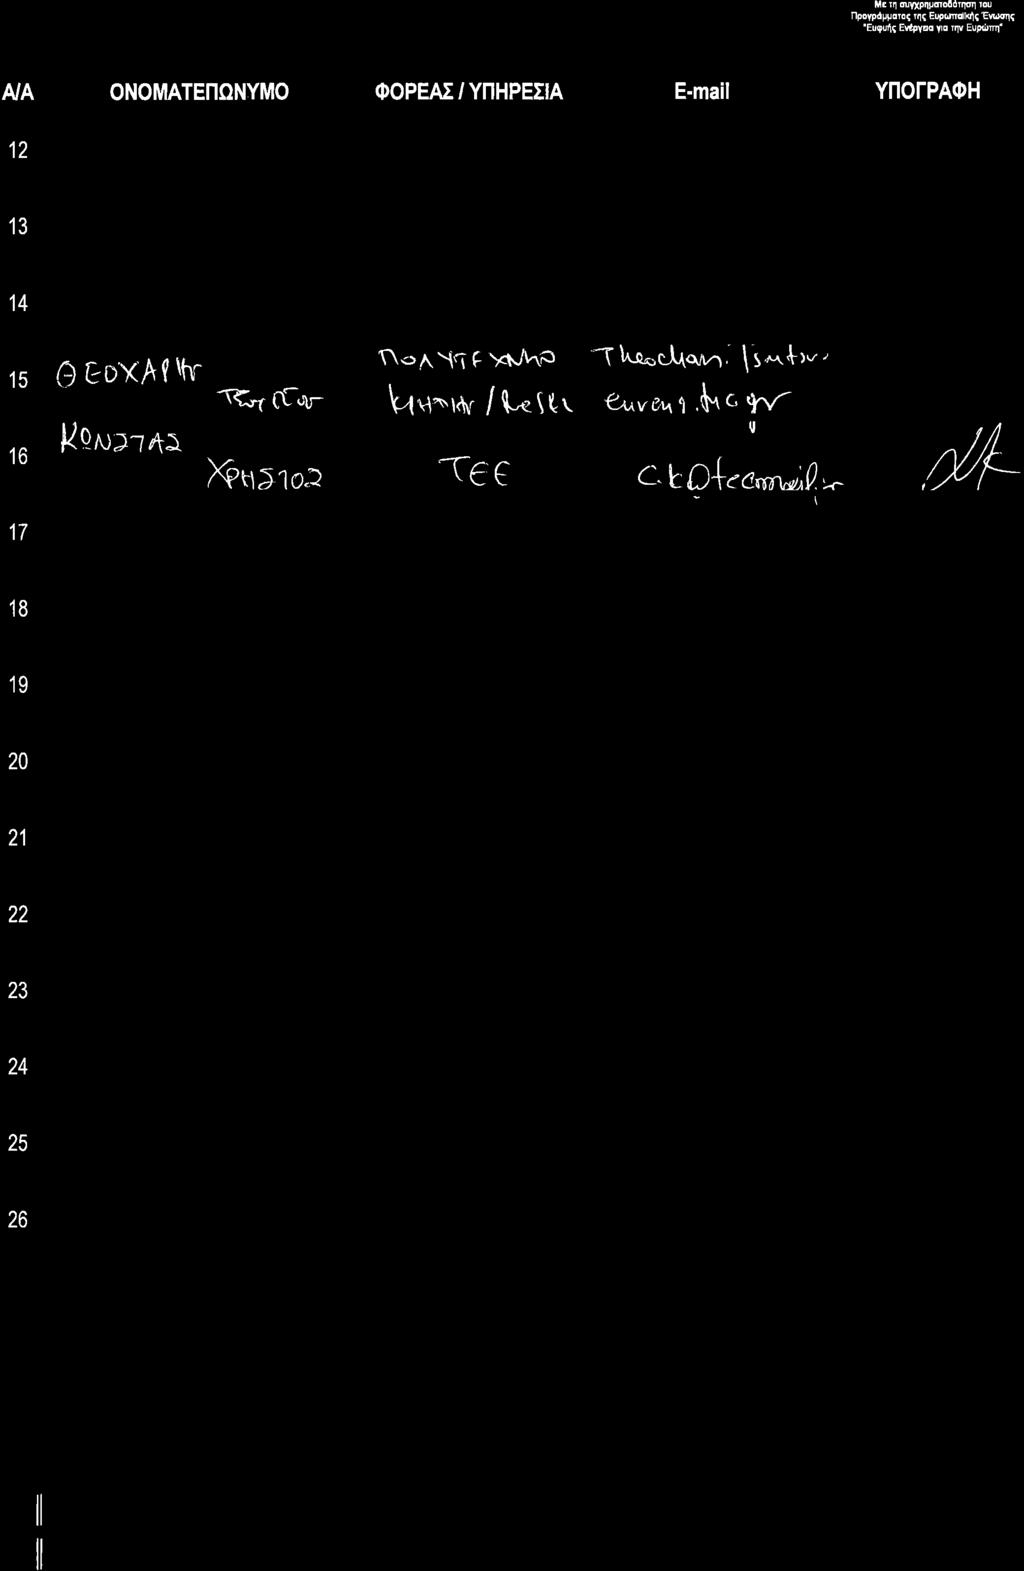 Με τη συγχρηματοδότηση του
Προγράμματος της Ευρωπαϊκής Ένωσης
"Ευφυής Ενέργεια για την Ευρώπη"
Α/Α ΟΝΟΜΑΤΕΠΩΝΥΜΟ ΦΟΡΕΑΣ / ΥΠΗΡΕΣΙΑ E-mail ΥΠΟΓΡΑΦΗ
12
13
14
15 ΘΕΟΧΑΡΗΣ ΠΟΛΥΤΕΧΝΕΙΟ
ΚΡΗΤΗΣ /
16 ΚΩΝΣΤΑΣ
ΧΡΗΣΤΟΣ ΤΕΕ
17
18
19
20
21
22
23
24
25
26